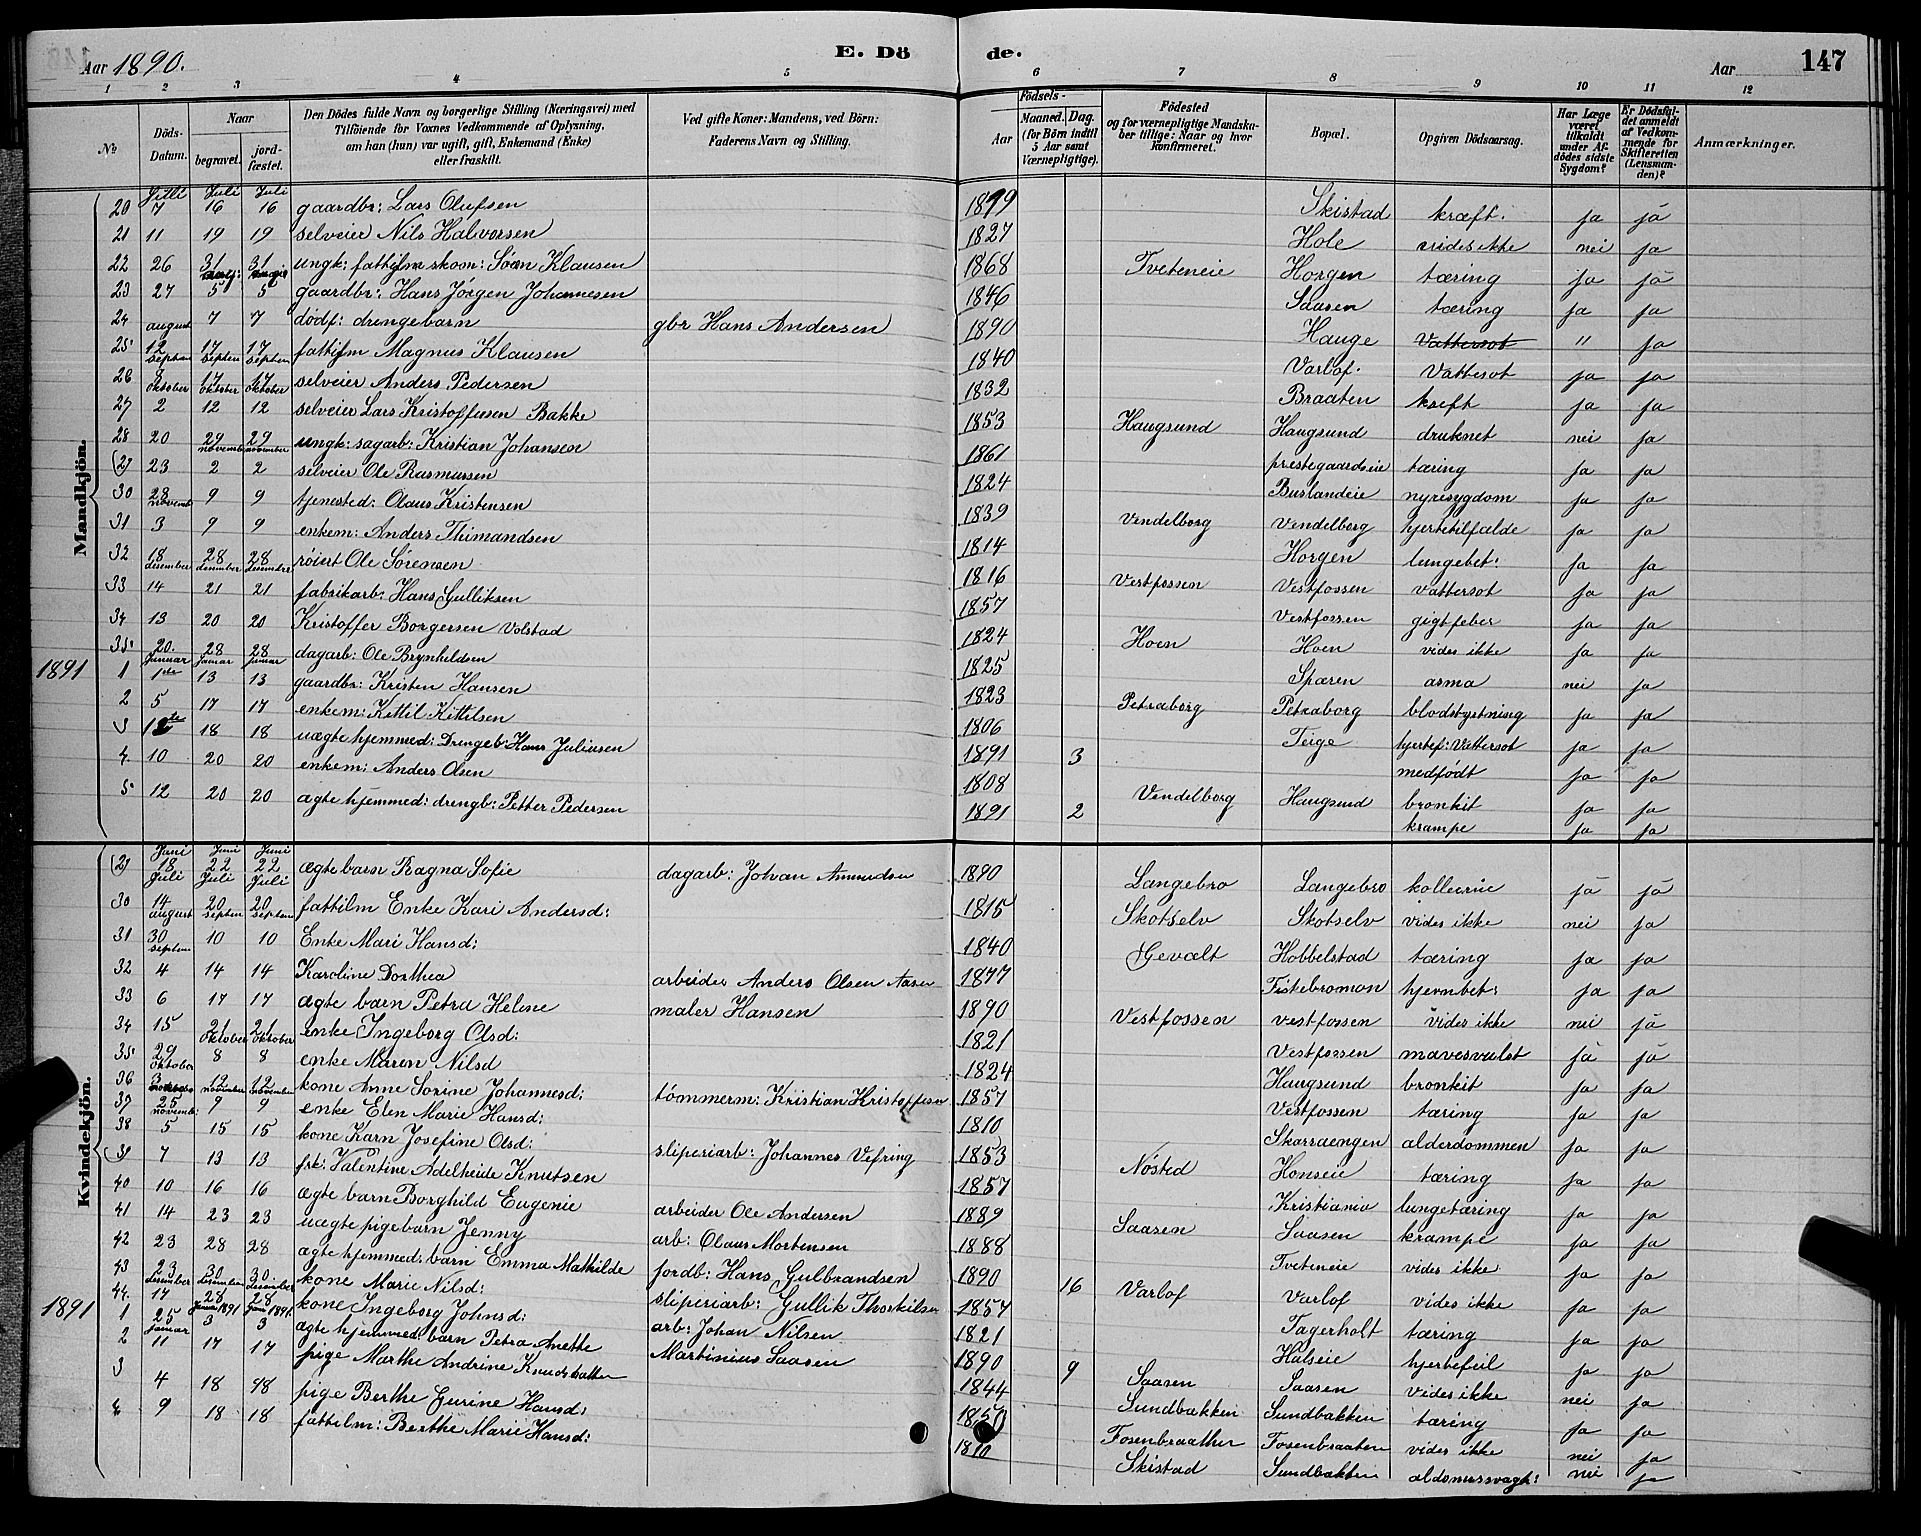 Aar 1890.
E. Dö
de.
Aar
147
1 2 3 4 5 6 7 8 9 10 11 12
No
Döds-Datum.
Naar
begravet.
jordfæstet.
Den Dödes fulde Navn og borgerlige Stilling (Næringsvei) med
Tilföiende for Voxnes Vedkommende af Oplysning,
om han (hun) var ugift, gift, Enkemand (Enke)
eller fraskilt.
Ved gifte Koner: Mandens, ved Börn:
Faderens Navn og Stilling.
Födsels-
Aar
Maaned. Dag.
(for Börn indtil 5 Aar samt Værnepligtige).
Födested
og for værnepligtige Mandskaber tillige: Naar og hvor konfirmeret.
Bopæl.
Opgiven Dödsaarsag.
Har Læge været tilkaldt under Afdödes sidste Sygdom?
Er Dödsfaldet anmeldt af Vedkommende for Skifteretten (Lensmanden)?
Anmærkninger.
Mandkjön.
Juli Juli Juli
20 7 16 16 gaardbr: Lars Olufsen 1899 Skistad kræft. ja ja
21 11 19 19 selveier Nils Halvorsen 1827 Hole vides ikke nei ja
22 26 31 31 ungk: fattiglm skom: Søren Klausen 1868 Tveteneie Horgen tæring ja ja
23 27 5 5 gaardbr: Hans Jörgen Johannesen 1846 Saasen tæring ja ja
24 august 7 7 dödf: drengebarn gbr Hans Andersen 1890 Hauge Vattersot " ja
25 12 17 17 fattiglm Magnus Klausen 1840 Varlof. Vattesot ja ja
septem septem septem
26 8 17 17 selveier Anders Pedersen 1832 Braaten kreft ja ja
oktober oktober oktober
27 2 12 12 selveier Lars Kristoffersen Bakke 1853 Haugsund Haugsund druknet nei ja
28 20 29 29 ungk: sagarb: Kristian Johansen 1861 prestegaardseie tæring ja ja
november november
29 23 2 2 selveier Ole Rasmussen 1824 Buslandeie nyresygdom ja ja
30 28 9 9 tjenested: Olaus Kristensen 1839 Vendelborg Vendelborg hjertetilfælde ja ja
novemb
31 3 9 9 enkem: Anders Thimandsen 1814 Horgen lungebet: ja ja
32 18 28 28 røiert Ole Sørensen 1816 Vestfossen Vestfossen vattersot ja ja
desember desember desember
33 14 21 21 fabrikarb: Hans Gulliksen 1857 Vestfossen gigtfeber ja ja
34 13 20 20 Kristoffer Borgersen Volstad 1824 Hoen Hoen vides ikke ja ja
35 20. 28 28 dagarb: Ole Brynhildsen 1825 Sparen asma nei ja
Januar Januar Januar
1891 1 1ste 13 13 gaardbr: Kristen Hansen 1823 Petraborg Petraborg blodstyrtning ja ja
2 5 17 17 enkem: Kittil Kittilsen 1806 Teige hjertef: Vattersot ja ja
3 12te 18 18 uægte hjemmed: Drengeb: Hans Juliusen 1891 3 medfödt ja ja
4. 10 20 20 enkem: Anders Olsen 1808 Vendelborg Haugsund bronkit ja ja
5 12 20 20 ægte hjemmed: drengb: Petter Pedersen 1891 2 krampe ja ja
Kvindekjön.
Juni Juni Juni
29 18 22 22 ægte barn Ragna Sofie dagarb: Johan Amundsen 1890 Langebro Langebro kollerine ja ja
Juli Juli Juli
30 14 20 20 fattilm Enke Kari Andersd: 1815 Skotselv Skotselv vides ikke nei ja
august septem septem
31 30 10 10 Enke Mari Hansd: 1840 Gevalt Hobbelstad tæring ja ja
septem
32 4 14 14 Karoline Dorthea arbeider Anders Olsen Aasen 1877 Fiskebromoen hjernbet: ja ja
33 6 17 17 ægte barn Petra Helene maler Hansen 1890 Vestfossen vestfossen vides ikke nei ja
34 15 21 21 enke Ingeborg Olsd: 1821 Vestfossen mavesvulst ja ja
oktober oktober
35 29 8 8 enke Maren Nilsd 1824 Haugsund bronkit ja ja
oktober
36 3 12 12 kone Anne Sorine Johannesd: tömmerm: Kristian Kristoffersen 1857 Vestfossen tæring ja ja
november november
37 25 9 9 enke Elen Marie Hansd: 1810 Skarraengen alderdommen ja ja
novemb:
38 5 15 15 kone Karn Josefine Olsd: sliperiarb: Johannes Vefring 1853 Nösted Honseie tæring ja ja
39 7 13 13 frk: Valentine Adelheide Knutsen 1857 Kristiania lungetæring ja ja
40 10 16 16 ægte barn Borghild Eugenie arbeider Ole Andersen 1889 Saasen Saasen krampe ja ja
41 14 23 23 uægte pigebarn Jenny arb: Olaus Mortensen 1888 Tveteneie vides ikke ja ja
42 23 28 28 ægte hjemmed: barn Emma Mathilde jordb: Hans Gulbrandsen 1890 16 Varlof Varlof vides ikke ja ja
43 23 30 30. kone Marie Nilsd: sliperiarb: Gullik Thorkilsen 1857 Tagerholt tæring ja ja
desember desember desember
44. 17 28 28 kone Ingeborg Johnsd: arb: Johan Nilsen 1821 Halseie hjertefeil ja ja
Januar 1891 Januar 1891
1891 1 25 3 3 ægte hjemmed: barn Petra Anette Martinius Saasen 1890 9 Saasen Saasen vides ikke nei ja
Januar
2 11 17 17 pige Marthe Andrine Knudsdatter 1844 Sundbakken Sundbakken tæring ja ja
3 4 18 18 pige Berthe Gurine Hansd: 1850 Fosenbraathen Fosenbraaten vides ikke nei ja
4 9 18 18 fattilm: Berthe Marie Hansd: 1810 Skistad Sundbakken aldomssvagh: nei ja